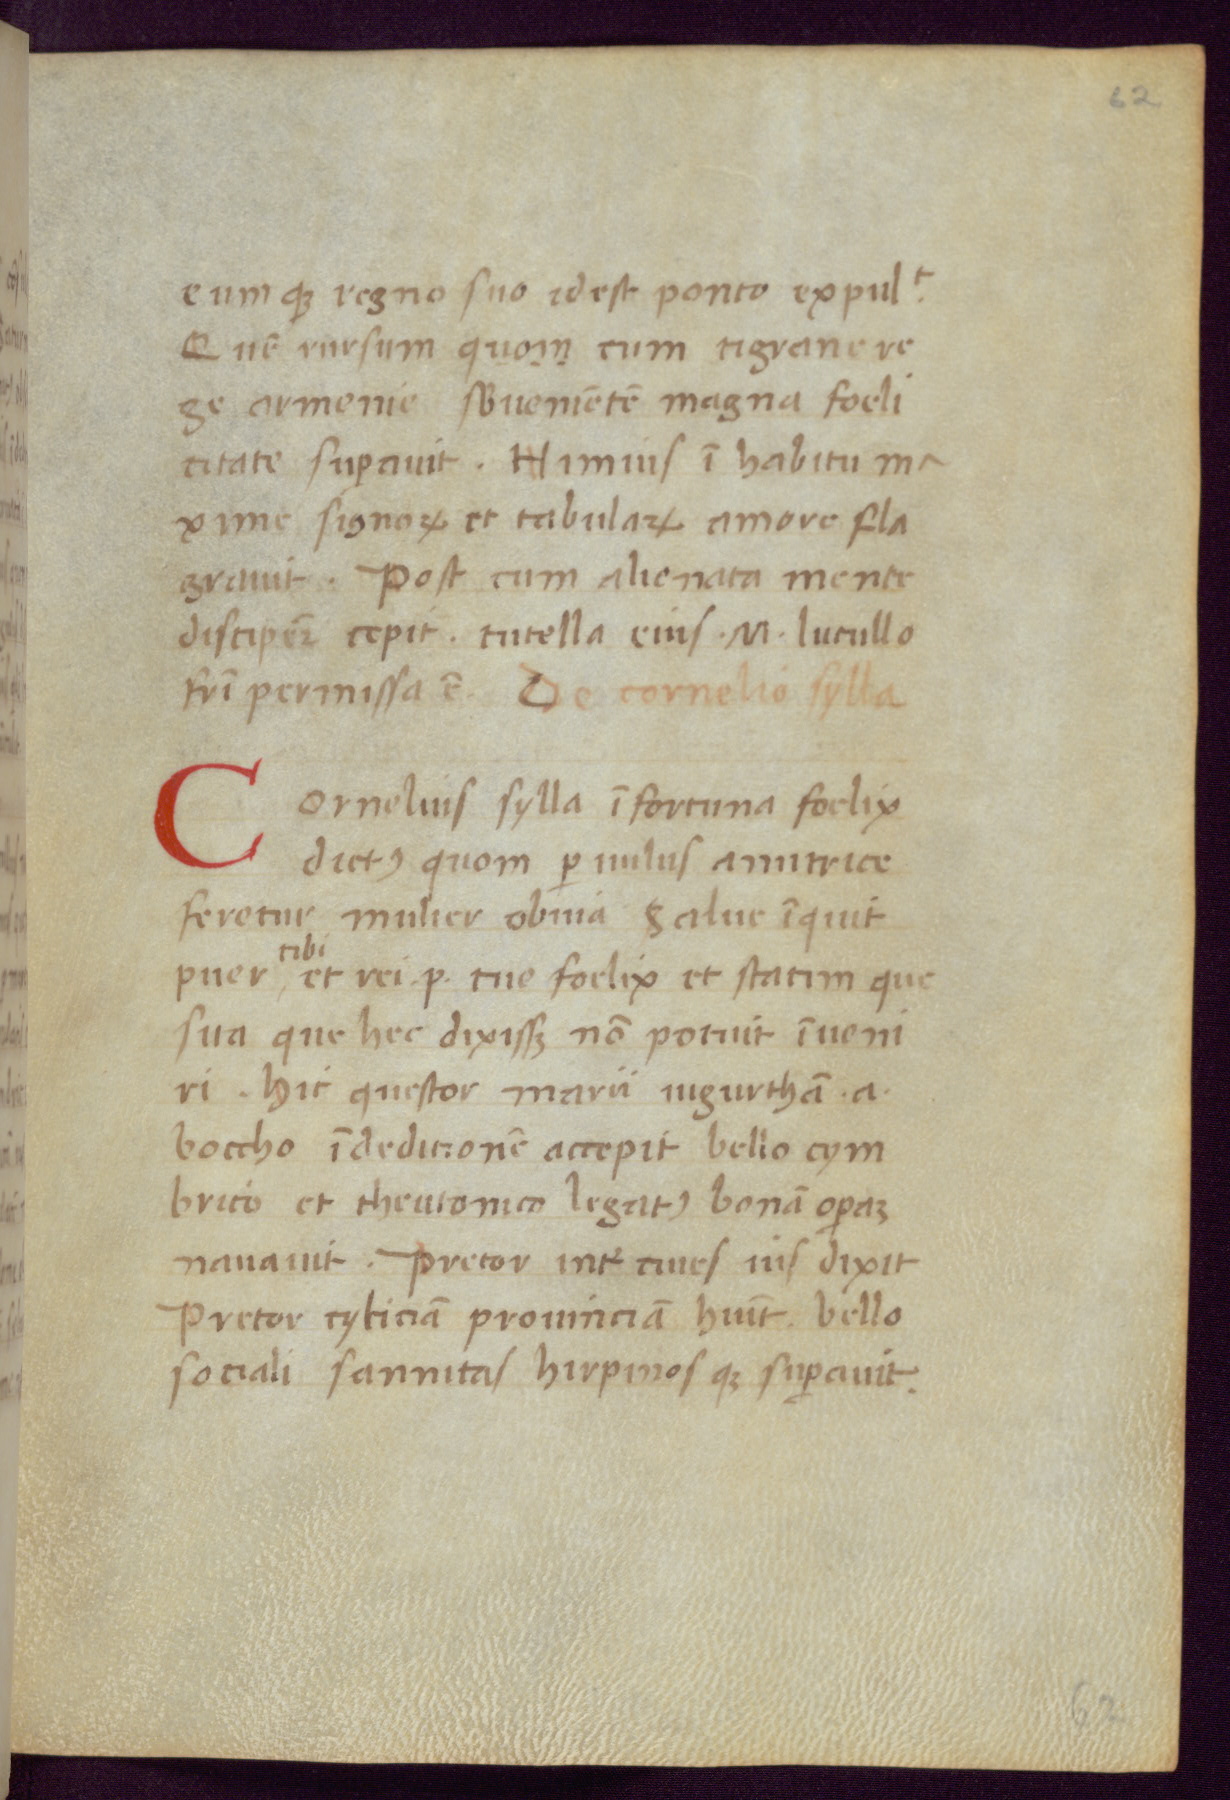 62
eumqꝫ regno suo idest ponto expult.
Quē rursum quom̱ cum tigrane re
ge armenie sb̄uenientē magna foeli
citate suꝑauit. Nimius ī habitu ma
xime signoꝝ et tabulaꝝ amore fla
grauit. Post cum alienata mente
cepit. tutella eius .M. lucullo
frī permissa ē. De cornelio sylla
Cornelius sylla ī fortuna foelix
dictꝯ quom ꝑuulus a nutrice
feretur mulier obuia Salue īquit
puer tibi et rei .p. tue foelix et statim que
sua que hec dixissꝫ nō potuit īueni
ri . hic questor marii iugurthā .a.
boccho ī deditionē accepit bello cym
brico et theutonico legatꝯ bonā oꝑaꝫ
nauauit . Pretor int̄ ciues ius dixit
Pretor cyliciā prouinciā huit̄. bello
sociali sannitas hirpinosqꝫ suꝑauit.
62